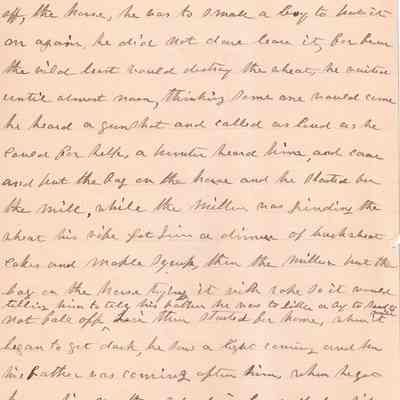 off, the horse, he was to small a boy to put it
on again, he did not dare leave it, for fear
the wild beast would destroy the wheat, he waited
until almost noon, thinking some one would come
he heard a gun shot and called as loud as he
could for help, a hunter heard him, and came
and put the bag on the horse and he started for
the mill, while the miller was grinding the
wheat his wife got him a dinner of buckwheat
cakes and maple syrup, then the miller put the
bag on the horse tying it with rope so it would
telling him to tell his father he was to like a boy to send
not fall off, he then started for home, when it
began to get dark, he saw a light coming and
his father was coming after him, when he got